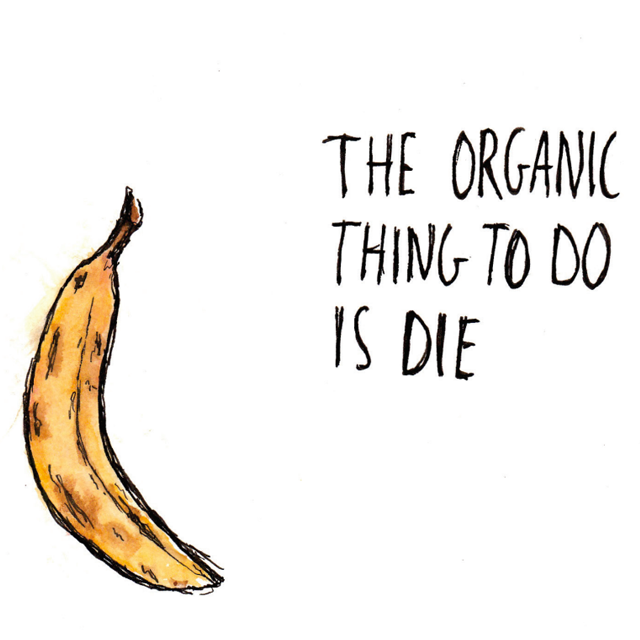 THE ORGANIC
THING TO DO
IS DIE